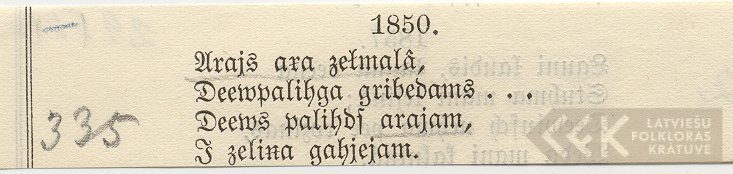 1850.
Arajs ara zełmalâ,
Deewpaliħga gribedams . . .
Deews paliħdſ arajam,
I zelina gaħjejam.
335
LATVIEŠU
FOLKLORAS
KRĀTUVE